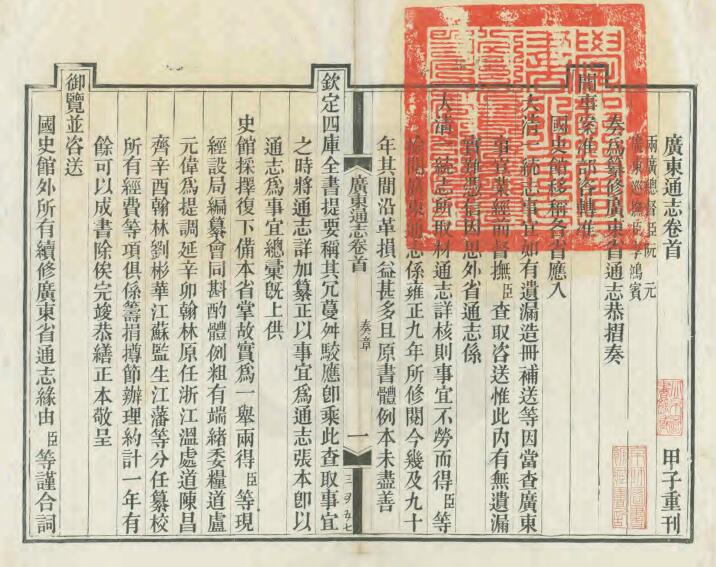 廣東通志卷首
甲子重刊
兩廣總督臣阮 元
廣東巡撫臣李鴻賓
奏爲纂修廣東省通志恭摺奏
聞事案准部咨轉准
國史館移稱各省應入
大清一統志事宜如有遺漏造冊補送等因當查廣東
事宜業經前督撫臣查取咨送惟此內有無遺漏
實難憑信因思外省通志係
大清一統志所取材通志詳核則事宜不勞而得臣等
檢閱廣東通志係雍正九年所修閱今幾及九十
年其間沿革損益甚多且原書體例本未盡善
廣東通志卷首
奏章
一
三ヲ五七
欽定四庫全書提要稱其冗蔓舛駮應卽乘此查取事宜
之時將通志詳加纂正以事宜爲通志張本卽以
通志爲事宜總彙旣上供
史館採擇復下備本省掌故實爲一舉兩得臣等現
經設局編纂會同斟酌體例粗有端緒委糧道盧
元偉爲提調延辛卯翰林原任浙江溫處道陳昌
齊辛酉翰林劉彬華江蘇監生江藩等分任纂校
所有經費等項俱係籌捐撙節辦理約計一年有
餘可以成書除俟完竣恭繕正本敬呈
御覽並咨送
國史館外所有續修廣東省通志緣由臣等謹合詞